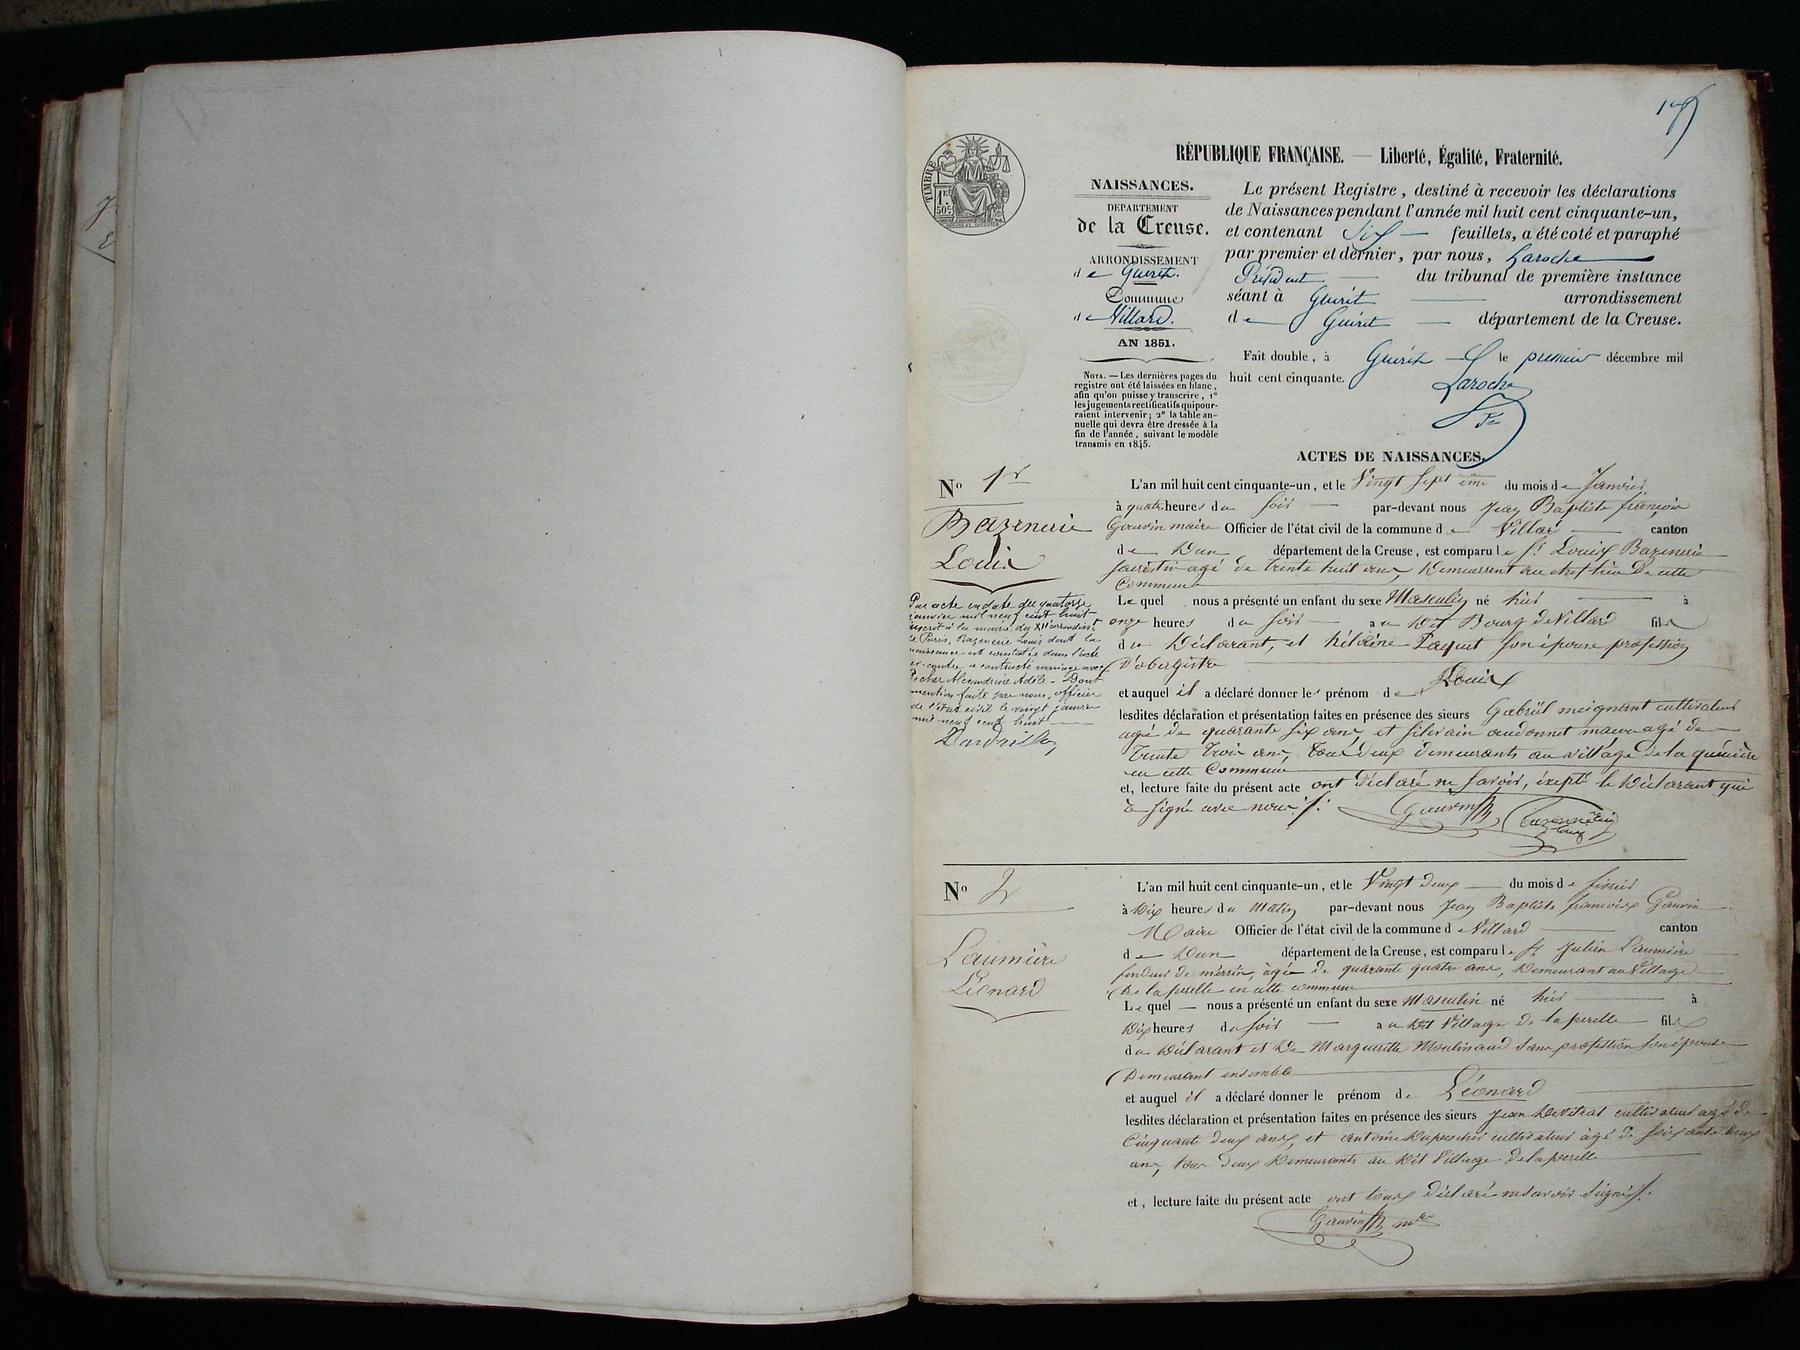 RÉPUBLIQUE FRANÇAISE. — Liberté, Égalité, Fraternité.
TIMBRE
1F.
50c.
NAISSANCES.
DÉPARTEMENT
de la Creuse.
ARRONDISSEMENT
de Guéret.
Commune
de Villard.
AN 1851.
NOTA. — Les dernières pages du
registre ont été laissées en blanc,
afin qu'on puisse y transcrire, 1°
les jugements rectificatifs qui pour-
raient intervenir; 2° la table an-
nuelle qui devra être dressée à la
fin de l'année, suivant le modèle
transmis en 1845.
Le présent Registre, destiné à recevoir les déclarations
de Naissances pendant l'année mil huit cent cinquante-un,
et contenant Six — feuillets, a été coté et paraphé
par premier et dernier, par nous, Laroche
Président — du tribunal de première instance
séant à Guéret — arrondissement
de Guéret — département de la Creuse.
Fait double, à Guéret le premier décembre mil
huit cent cinquante.
Laroche
ACTES DE NAISSANCES.
N° 1er
Bazenerie
Louis
Par acte en date du quatorze
janvier mil neuf cent huit
inscrit à la mairie du XIIe arrondisst
de Paris, Bazenerie Louis dont la
naissance est constatée dans l'acte
ci-contre a contracté mariage avec
Alexandrine Adèle - Dont
mention faite par nous, officier
de l'état civil le vingt janvier
mil neuf cent huit
L'an mil huit cent cinquante-un, et le Vingt Septième du mois de Janvier
à quatre heures du soir — par-devant nous Jean Baptiste françois
Gauvin maire Officier de l'état civil de la commune de Villar — canton
de Dun département de la Creuse, est comparu le Sr Louis Bazenerie
sacristin agé de trente huit ans, Demeurant au chef lieu De cette
Commune
Lequel nous a présenté un enfant du sexe Masculin né hier — à
onze heures du soir — au dit Bourg de Villard fils
du Déclarant, et hélaine Paquet son épouse profession
D'obergiste
et auquel il a déclaré donner les prénom de Louis
lesdites déclaration et présentation faites en présence des sieurs Gabriël meignant cultivateur
agé de quarante six ans, et silvain audonnet agé de
Trente Trois ans, Tous deux demeurants au village de la
en cette Commune
et, lecture faite du présent acte ont déclaré ne savoir, éxepté le Déclarant qui
à signé avec nous ./.
Gauvin
N° 2
Laumière
Léonard
L'an mil huit cent cinquante-un, et le Vingt deux — du mois de février
à Dix heures du Matin par-devant nous Jean Baptiste francoise Gauvin
Maire Officier de l'état civil de la commune de Villard — canton
de Dun département de la Creuse, est comparu le Sr Julien Laumière
fendeur de mérrin, agé de quarante quatre ans, Demeurant au Village
De la perelle en cette commune
Lequel — nous a présenté un enfant du sexe Masculin né hier — à
Dix heures du soir — au dit Village de la perelle fils
du Déclarant et De Marguerite Moulinaud sans profession son épouse
Demeurant ensemble
et auquel il a déclaré donner le prénom de Léonard
lesdites déclaration et présentation faites en présence des sieurs Jean cultivateur agé de
Cinquante deux ans, et antoine cultivateur agé de soixante deux
ans, tous deux Demeurants au Dit Village de la perelle
et, lecture faite du présent acte ont tous déclaré ne savoir signé ./.
Gauvin mre